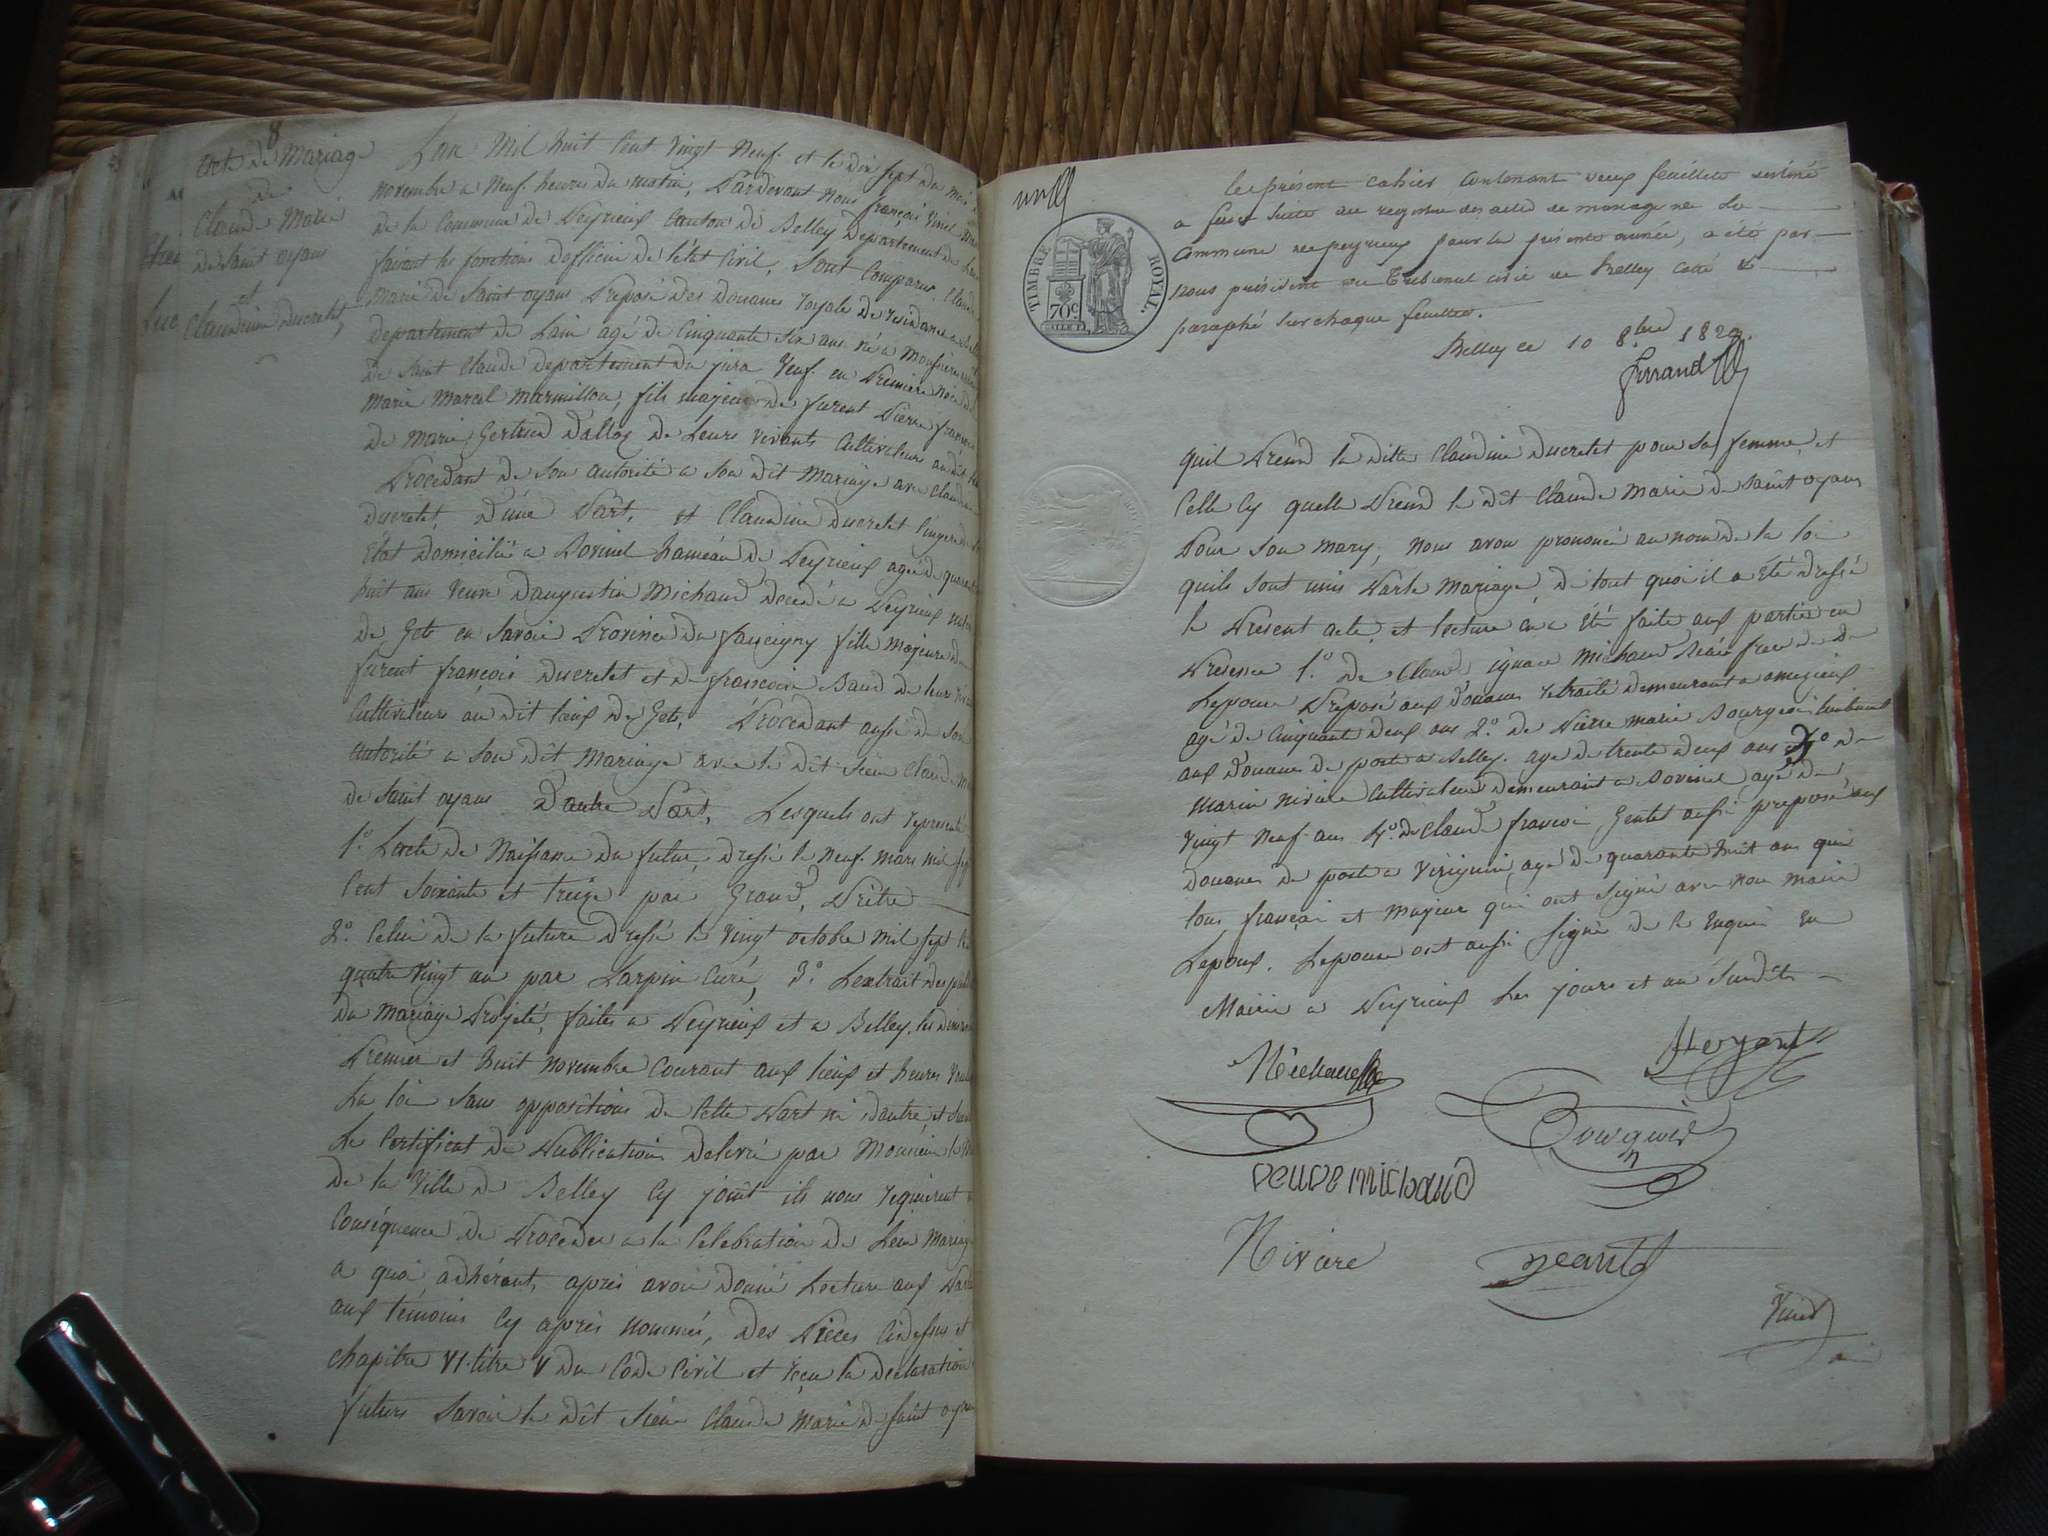 8
acte de Mariage
de
Claude Marie
de Saint oyans
et
Claudine ducretet,
L'an Mil huit Cent Vingt Neuf et le dix sept du mois
novembre a Neuf heures du matin, Pardevant Nous françois Vinet
de la Commune de Peyrieux Canton de Belley Departement de
faisant les fonctions d'officier de l'état Civil, sont Comparus, Claude
Marie de Saint oyans Preposé des douanes royale de residance a
departement de Lain agé de Cinquante six ans né a
de Saint Claude departement du jura Veuf en Premiere Noce de
Marie Marcel Marmillon, fils majeur de furent Pierre françois
de Marie Gertrude dalloz de Leurs vivants Cultivateurs au dit
Procédant de son autorité a son dit Mariage avec Claudine
ducretet, D'une Part, et Claudine ducretet lingere de
Etat domicilié a Sovinel hameau de Peyrieux agé de quarante
huit ans Veuve d'augustin Michaud décédé a Peyrieux
de Gets en Savoie Province du faucigny fille majeure de
furent françois ducretet et de françoise Baud de leurs
Cultivateurs au dit Lieux de Gets, Procédant aussi de son
autorité a son dit Mariage avec le dit sieur Claude
de Saint oyans D'autre Part, Lesquels ont representé
1.º Lacte de Naissance du futur, dressé le Neuf mars mil sept
Cent soixante et treize par Grand, Prêtre
2.º Celui de la future dressé le vingt octobre mil sept
quatre vingt un par Larpin Curé, 3.º Lextrait des
du Mariage Projeté, faites a Peyrieux et a Belley, les
Premier et huit novembre Courant aux lieux et heures
La loi sans oppositions de Cette Part ni dautre, et
Le Certificat de Publications delivré par Monsieur
de la Ville de Belley Cy joint ils nous requierent
Conséquence de Proceder a la Celebration de Leur Mariage
a quoi adhérant, après avoir donné Lecture aux
aux témoins Cy après nommés, des Pièces Cidessus et
chapitre VI. titre V du Code Civil et reçu la declaration
futurs Savoir le dit Sieur Claude Marie de Saint oyans
Le présent cahier contenant deux feuillets destiné
a faire suite au registre des actes de mariage de la
Commune de peyrieux pour la présente année, a été par
nous président du Tribunal civil de Belley coté &
paraphé sur chaque feuillet.
Belley ce 10 8.bre 1829.
ferrand
TIMBRE ROYAL
70c
quil Prend la ditte Claudine ducretet pour sa femme, et
Celle Cy quelle Prend le dit Claude Marie de Saint oyans
Pour son mary, Nous avons prononcé au nom de la loi
quils sont unis Par le Mariage, de tout quoi il a été dressé
le Present acte, et lecture en a été faite aux parties en
Presence 1.º de Claude ignace Michaud Beau frere de
Lepouse Preposé aux douanes retraité demeurant a
agé de Cinquante deux ans 2.º de Pierre marie Bourgeois lieutenant
aux douanes de poste a Belley. agé de trente deux ans 3.º de
Marin Nivière Cultivateur demeurant a Sovinel, agé de
Vingt Neuf ans 4.º de Claude françois Gentet aussi preposé aux
douanes de poste a Virignin, agé de quarante huit ans qui
tous français et majeur qui ont signé avec nous maire
Lepoux. Lepouse ont aussi signé de ce requis en
Mairie a Peyrieux Les jours et an Susdits
Michaud
veuve michaud
Vinet